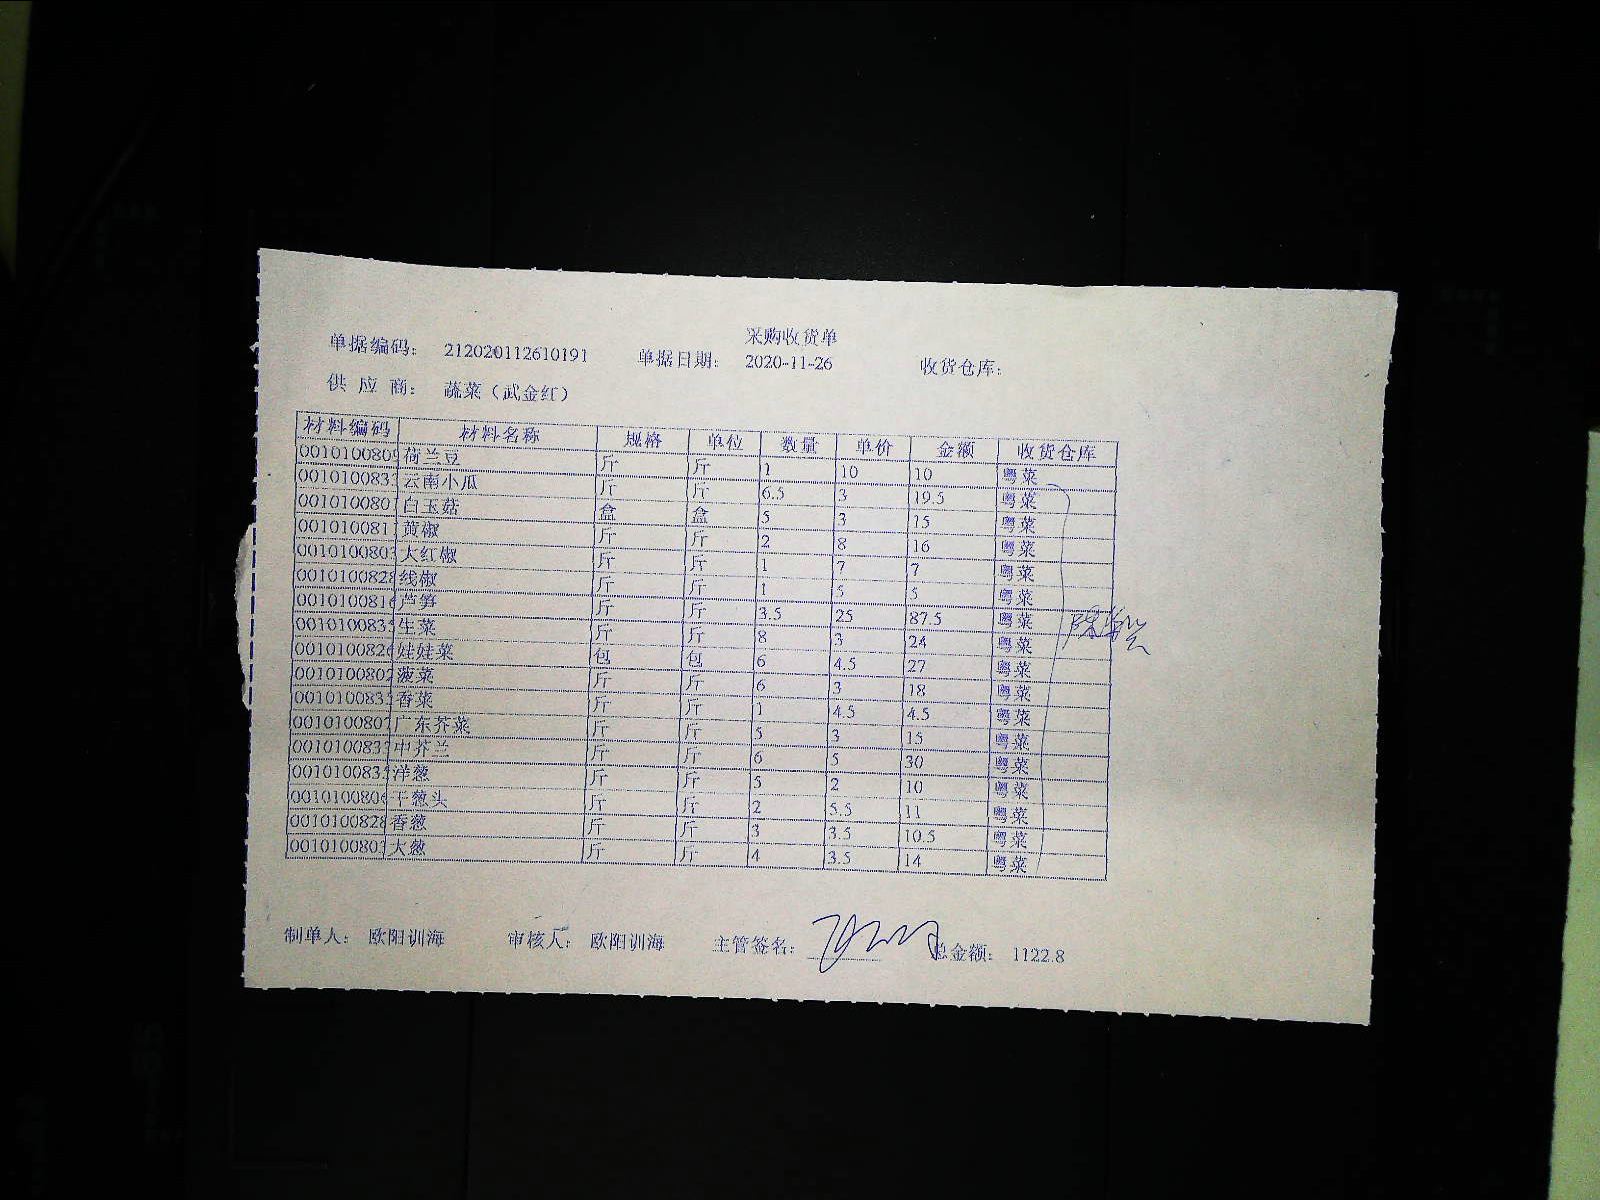 采购收货单
单据编码： 212020112610191 单据日期： 2020-11-26 收货仓库：
供 应 商： 蔬菜（武金红）
材料编码 材料名称 规格 单位 数量 单价 金额 收货仓库
001010080 荷兰豆 斤 斤 1 10 10 粤菜
001010083 云南小瓜 斤 斤 6.5 3 19.5 粤菜
001010080 白玉菇 盒 盒 5 3 15 粤菜
001010081 黄椒 斤 斤 2 8 16 粤菜
001010080 大红椒 斤 斤 1 7 7 粤菜
001010082 线椒 斤 斤 1 5 5 粤菜
001010081 芦笋 斤 斤 3.5 25 87.5 粤菜
001010083 生菜 斤 斤 8 3 24 粤菜
001010082 娃娃菜 包 包 6 4.5 27 粤菜
001010080 菠菜 斤 斤 6 3 18 粤菜
001010083 香菜 斤 斤 1 4.5 4.5 粤菜
001010080 广东芥菜 斤 斤 5 3 15 粤菜
001010083 中芥兰 斤 斤 6 5 30 粤菜
001010083 洋葱 斤 斤 5 2 10 粤菜
001010080 干葱头 斤 斤 2 5.5 11 粤菜
001010082 香葱 斤 斤 3 3.5 10.5 粤菜
001010080 大葱 斤 斤 4 3.5 14 粤菜
制单人： 欧阳训海 审核人： 欧阳训海 主管签名： 总金额： 1122.8